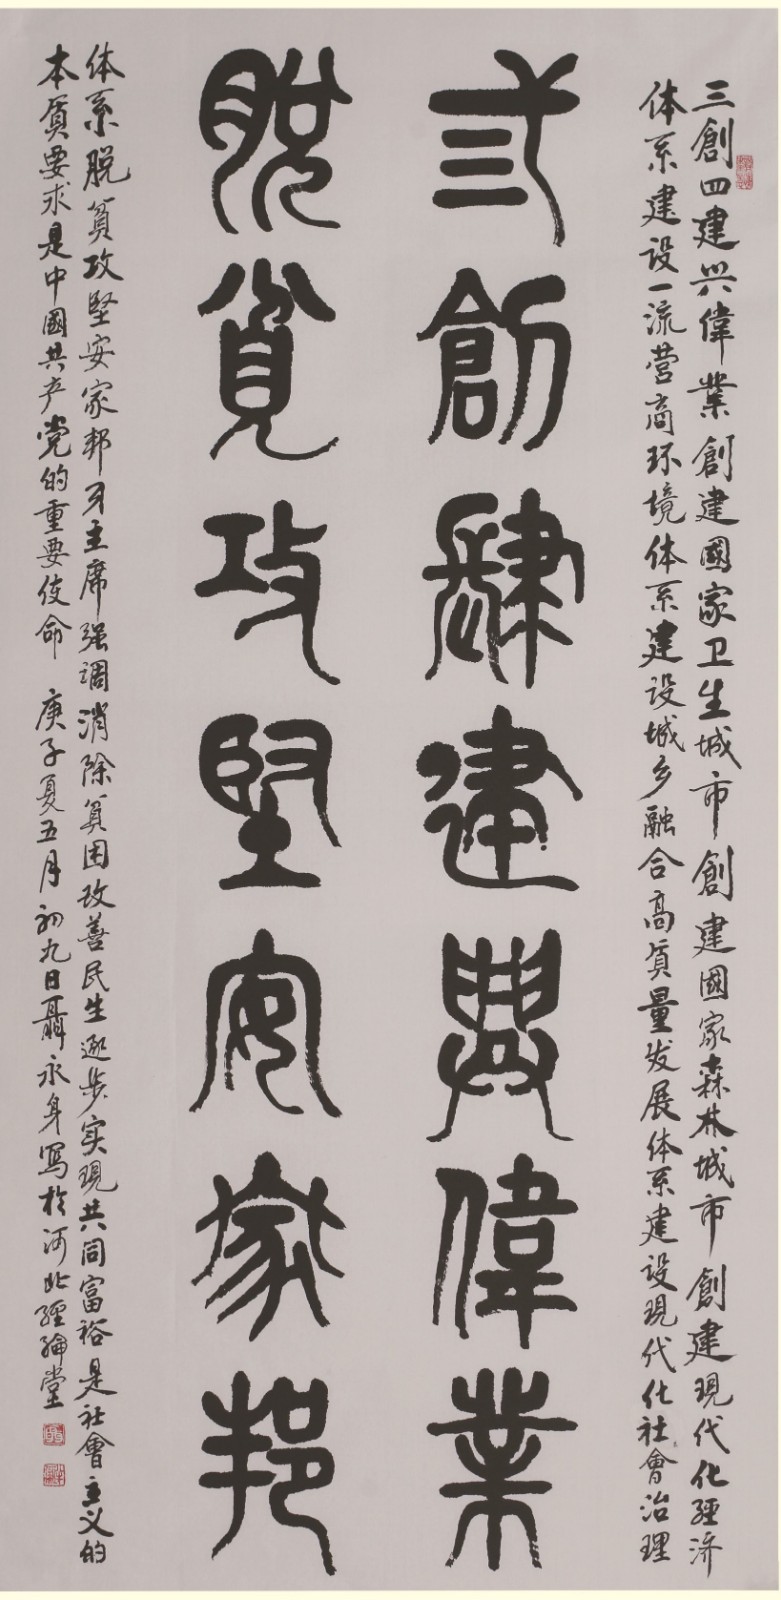 三創四建兴偉業創建國家卫生城市創建國家森林城市創建現代化経济
体系建设一流营商环境体系建设城乡融合高质量发展体系建设現代化社會治理
弎創肆建興偉業
脱貧攻堅安家邦
体系脱貧攻堅安家邦习主席强调消除貧困改善民生逐步实現共同富裕是社會主义的
本质要求是中國共产党的重要使命 庚子夏五月初九日聶永身写於河北経綸堂